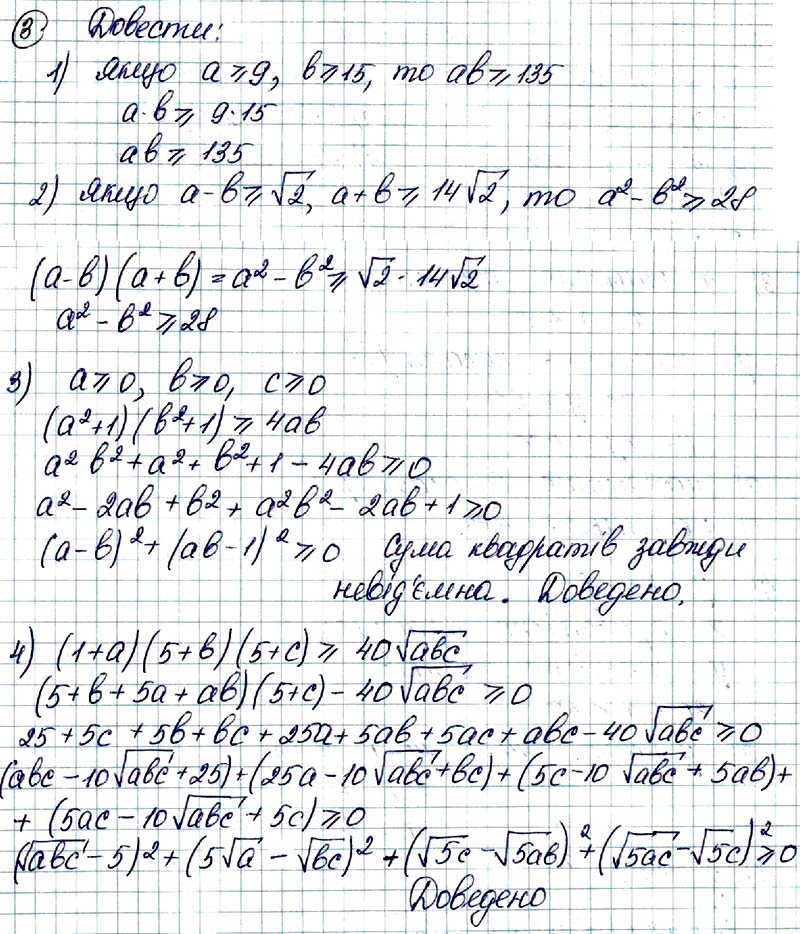 ③ Довести:
1) якщо a ⩾ 9, b ⩾ 15, то ab ⩾ 135
a·b ⩾ 9·15
ab ⩾ 135
2) якщо a-b ⩾ √2, a+b ⩾ 14√2, то a²-b² ⩾ 28
(a-b)(a+b) = a²-b² ⩾ √2 · 14√2
a²-b² ⩾ 28
3) a ⩾ 0, b ⩾ 0, c ⩾ 0
(a²+1)(b²+1) ⩾ 4ab
a²b²+a²+b²+1-4ab ⩾ 0
a²-2ab+b²+a²b²-2ab+1 ⩾ 0
(a-b)²+(ab-1)² ⩾ 0 Сума квадратів завжди
невід'ємна. Доведено.
4) (1+a)(5+b)(5+c) ⩾ 40√abc
(5+b+5a+ab)(5+c)-40√abc ⩾ 0
25+5c+5b+bc+25a+5ab+5ac+abc-40√abc ⩾ 0
(abc-10√abc+25)+(25a-10√abc+bc)+(5c-10√abc+5ab)+
+(5ac-10√abc+5c) ⩾ 0
(√abc-5)²+(5√a-√bc)²+(√5c-√5ab)²+(√5ac-√5c)² ⩾ 0
Доведено